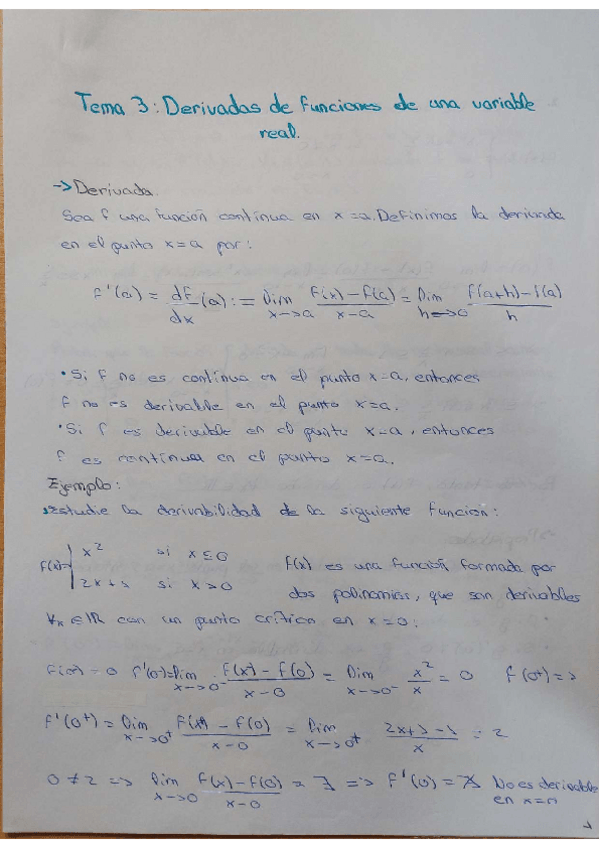 Tema 3: Derivadas de funciones de una variable
real.
-> Derivada.
Sea f una función continua en x=a. Definimos la derivada
en el punto x=a por:
f'(a) = df/dx (a) := lim x->a (f(x)-f(a))/(x-a) = lim h->0 (f(a+h)-f(a))/h
• Si f no es continua en el punto x=a, entonces
f no es derivable en el punto x=a.
• Si f es derivable en el punto x=a, entonces
f es continua en el punto x=a.
Ejemplo:
Estudie la derivabilidad de la siguiente función:
f(x)= { x² si x≤0
2x+ si x>0
f(x) es una función formada por
dos polinomios, que son derivables
∀x∈ℝ con un punto crítico en x=0:
f(0-) = 0 f'(0)=lim x->0- (f(x)-f(0))/(x-0) = lim x->0- x²/x = 0 f(0+) =>
f'(0+) = lim x->0+ (f(x)-f(0))/(x-0) = lim x->0+ (2x+ - )/x = 2
0≠2 => lim x->0 (f(x)-f(0))/(x-0) = ∄ => f'(0) = ∄ No es derivable
en x=0